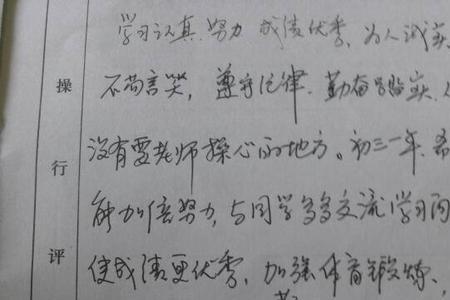 学习认真、努力 成绩优秀、为人诚实
不苟言笑,遵守纪律、勤奋踏实、
没有要老师操心的地方。初三一年、希
能加倍努力,与同学多多交流学习
使成绩更优秀、加强体育锻炼、
操
行
评